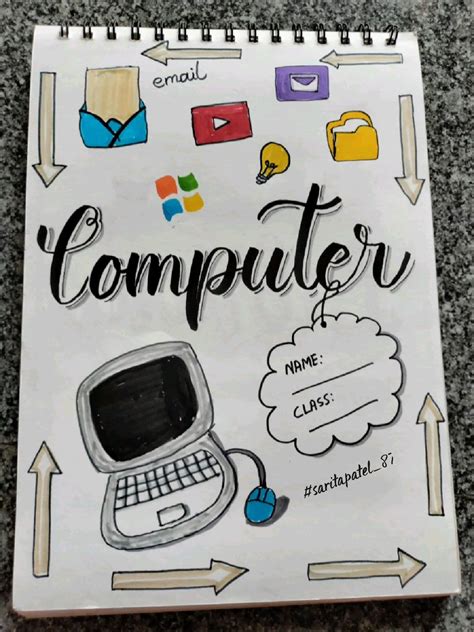 email
Computer
NAME:
CLASS:
#saritapatel_87